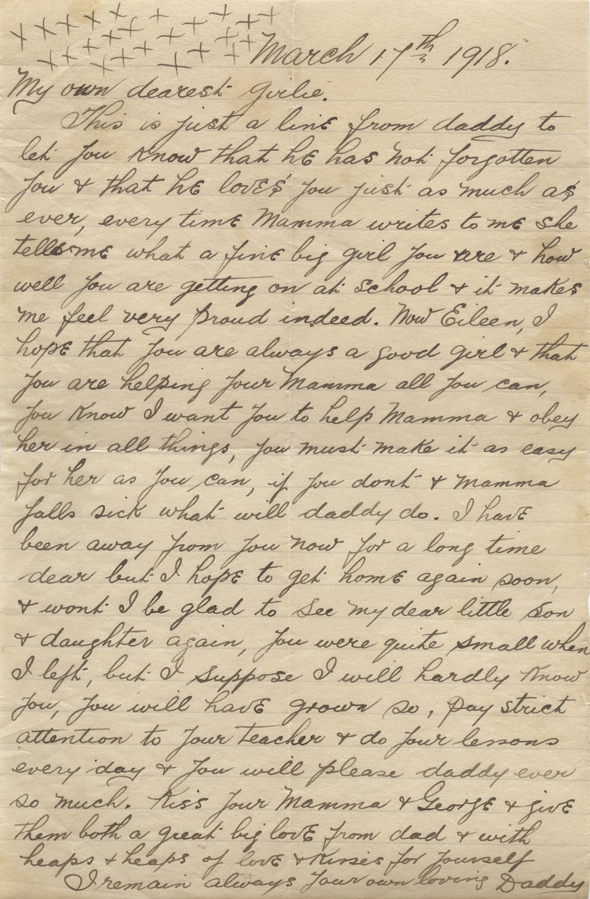 March 17th 1918.
My own dearest Girlie.
This is just a line from daddy to
let you know that he has not forgotten
you & that he loves you just as much as
ever, every time Mamma writes to me she
tells me what a fine big girl you are & how
well you are getting on at school & it makes
me feel very proud indeed. Now Eileen, I
hope that you are always a good girl & that
you are helping your Mamma all you can,
you know I want you to help Mamma & obey
her in all things, you must make it as easy
for her as you can, if you dont & Mamma
falls sick what will daddy do. I have
been away from you now for a long time
dear but I hope to get home again soon,
& wont I be glad to see my dear little son
& daughter again, you were quite small when
I left, but I suppose I will hardly know
you, you will have grown so, pay strict
attention to your teacher & do your lessons
every day & you will please daddy ever
so much. Kiss your Mamma & George & give
them both a great big love from dad & with
heaps & heaps of love & kisses for yourself
I remain always your own loving Daddy